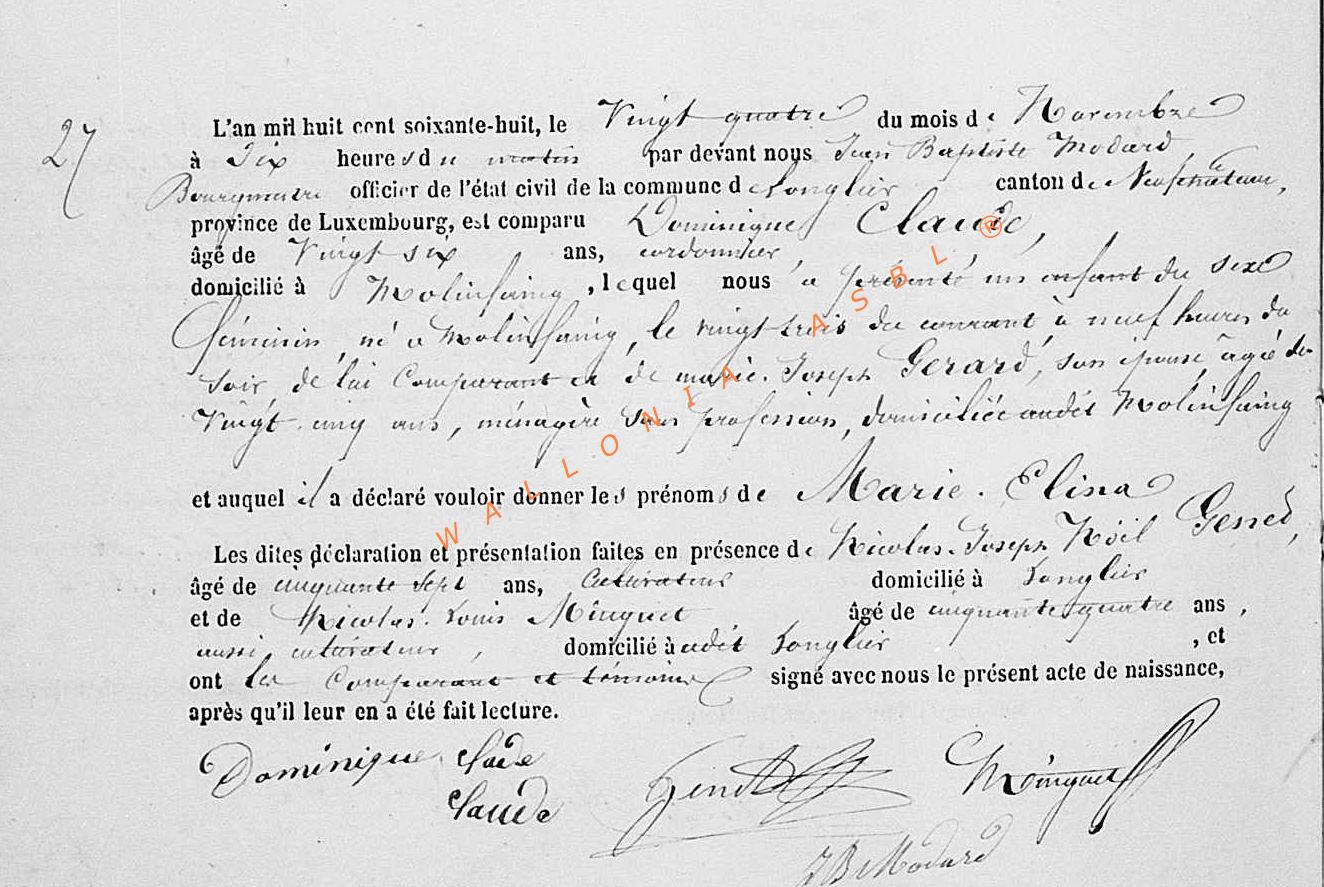 27
L'an mil huit cent soixante-huit, le Vingt quatre du mois de Novembre
à Dix heures du matin par devant nous Jean Baptiste Modard
Bourgmestre officier de l'état civil de la commune de Longlier canton de Neufchâteau,
province de Luxembourg, est comparu Dominique Claude,
âgé de Vingt six ans, cordonnier,
domicilié à Molinfaing, lequel nous a présenté un enfant du sexe
féminin, né à Molinfaing, le vingt trois du courant à neuf heures du
soir de lui Comparant et de marie. Joseph Gerard, son épouse âgée de
Vingt cinq ans, ménagère sans profession, domiciliée audit Molinfaing
et auquel il a déclaré vouloir donner les prénoms de Marie. Elina
Les dites déclaration et présentation faites en présence de Nicolas. Joseph Noël
âgé de cinquante sept ans, Cultivateur domicilié à Longlier
et de Nicolas. Louis Minguet âgé de cinquante quatre ans,
aussi cultivateur, domicilié audit Longlier, et
ont les Comparant et témoins signé avec nous le présent acte de naissance,
après qu'il leur en a été fait lecture.
Dominique Claude
Claude
Minguet
JB Modard
WALLONIA ASBL ®